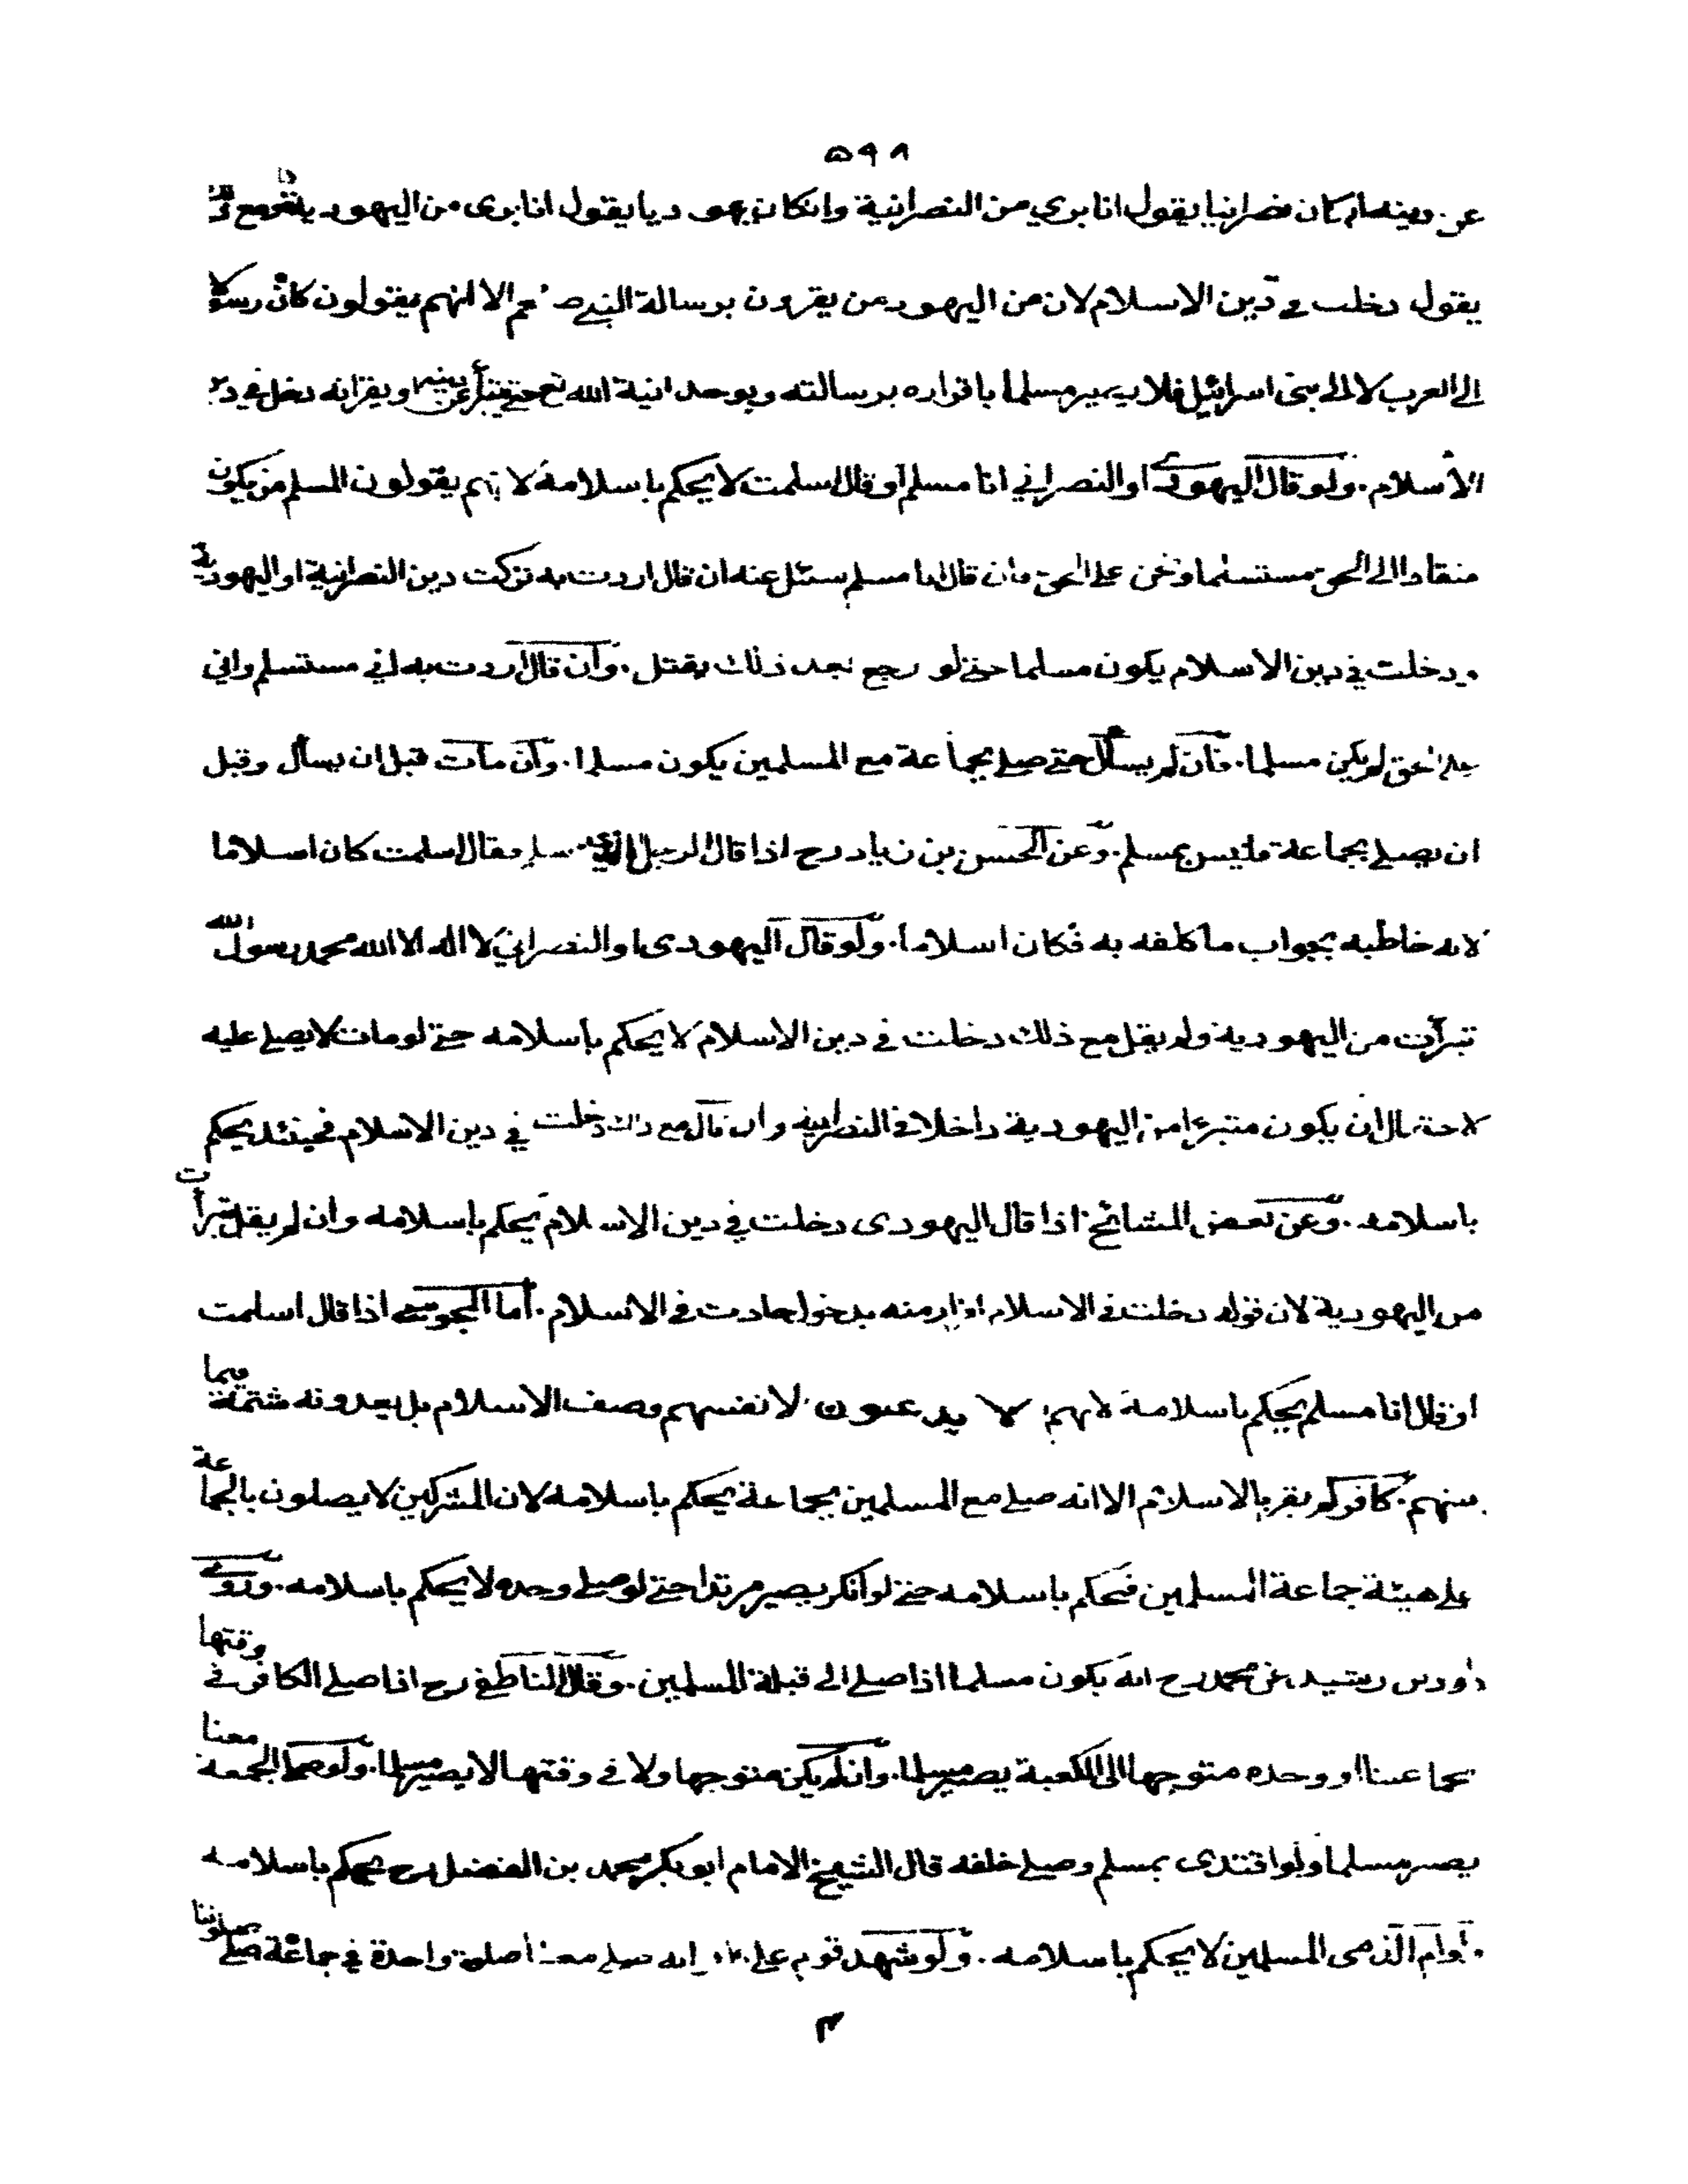 ٥٩٨
عن دينه ان كان نصرانيا يقول انا بري من النصرانية وانكان يهوديا يقول انا برى من اليهودية مع
يقول دخلت في دين الاسلام لان من اليهود من يقرون برسالة النبي صلعم الا انهم يقولون كان رسولا
الى العرب لا الى بنى اسرائيل فلا يصير مسلما باقراره برسالته وبوحدانية الله تع حتى يتبرأ عن دينهم ويقر انه دخل في دين
الاسلام. ولو قال اليهودي او النصراني انا مسلم او قال اسلمت لا يحكم باسلامه لانهم يقولون المسلم من يكون
منقادا الى الحق مستسلما ونحن على الحق وان قال انا مسلم سئل عنه ان قال اردت به تركت دين النصرانية او اليهودية
ودخلت في دين الاسلام يكون مسلما حتى لو رجع بعد ذلك يقتل. وان قال اردت به اني مستسلم واني
على الحق لم يكن مسلما. فان لم يسأل حتى صلى بجماعة مع المسلمين يكون مسلما. وان مات قبل ان يسأل وقبل
ان يصلي بجماعة فليس بمسلم. وعن الحسن بن زياد رح اذا قال الرجل للذمي اسلم فقال اسلمت كان اسلاما
لانه خاطبه بجواب ما كلفه به فكان اسلاما. ولو قال اليهودى او النصراني لا اله الا الله محمد رسول الله
تبرأت من اليهودية ولم يقل مع ذلك دخلت في دين الاسلام لا يحكم باسلامه حتى لو مات لا يصلى عليه
لاحتمال ان يكون متبرءا من اليهودية داخلا في النصرانية وان قال مع ذلك دخلت في دين الاسلام فحينئذ يحكم
باسلامه. وعن بعض المشائخ اذا قال اليهودى دخلت في دين الاسلام يحكم باسلامه وان لم يقل تبرأت
من اليهودية لان قوله دخلت في الاسلام اقرار منه بدخول حادث في الاسلام. أما المجوسي اذا قال اسلمت
او قال انا مسلم يحكم باسلامه لانهم لا يدعون لانفسهم وصف الاسلام بل يعدونه شتمة فيما
بينهم. كافر لم يقر بالاسلام الا انه صلى مع المسلمين بجماعة يحكم باسلامه لان المشركين لا يصلون بالجماعة
على هيئة جماعة المسلمين فحكم باسلامه حتى لو انكر يصير مرتدا حتى لو صلى وحده لا يحكم باسلامه. وروى
داود بن رشيد عن محمد رح انه يكون مسلما اذا صلى الى قبلة المسلمين. وقال الناطفي رح اذا صلى الكافر في وقتها
بجماعتنا او وحده متوجها الى الكعبة يصير مسلما. وان لم يكن متوجها ولا في وقتها لا يصير مسلما. ولو صلى الجمعة معنا
يصير مسلما ولو اقتدى بمسلم وصلى خلفه قال الشيخ الامام ابو بكر محمد بن الفضل رح يحكم باسلامه
ولو ام الذمى المسلمين لا يحكم باسلامه. ولو شهد قوم على انه صلى معنا صلوة واحدة في جماعة صلى بصلوتنا